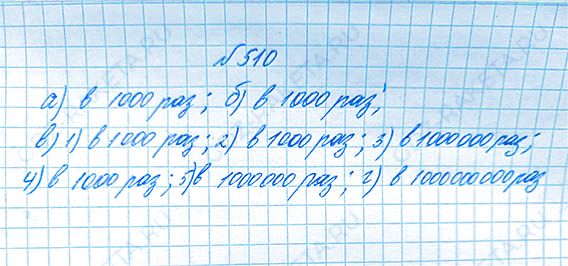 №510
а) в 1000 раз; б) в 1000 раз;
в) 1) в 1000 раз; 2) в 1000 раз; 3) в 1000000 раз;
4) в 1000 раз; 5) в 1000000 раз; г) в 1000000000 раз